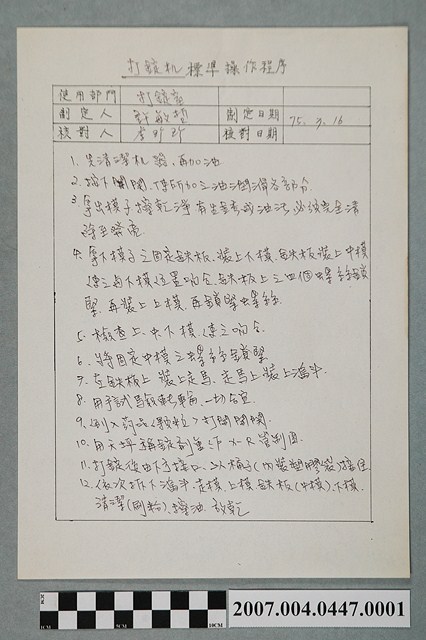 打錠机標準操作程序
使用部門 打錠部
制定人 制定日期 75.3.16
核對人 核對日期
1. 先清潔机器,再加油
2. 按下開関,使所加之油潤滑各部分
3. 拿出模子擦乾淨,有生銹或油污必須完全清
除至晴亮
4. 拿下模子之固定鉄板,裝上下模,鉄板裝上中模
使之與下模位置吻合,鉄板上之四個螺絲鎖
緊,再裝上上模,再鎖緊螺絲
5. 檢查上、中、下模使之吻合
6. 將固定中模之螺絲鎖緊
7. 在鉄板上裝上走馬,走馬上裝上漏斗
8. 用手試馬轉輪一切合宜
9. 倒入药品(顆粒)打開開関
10. 用天坪稱錠剂重作X-R管制図
11. 打錠後由下方接口以桶子(內裝塑膠袋)接住
12. 依次拆下漏斗、走模、上模、鉄板(中模)、下模
清潔(刷粉)、擦油、放乾
1CM 5CM 10CM
2007.004.0447.0001